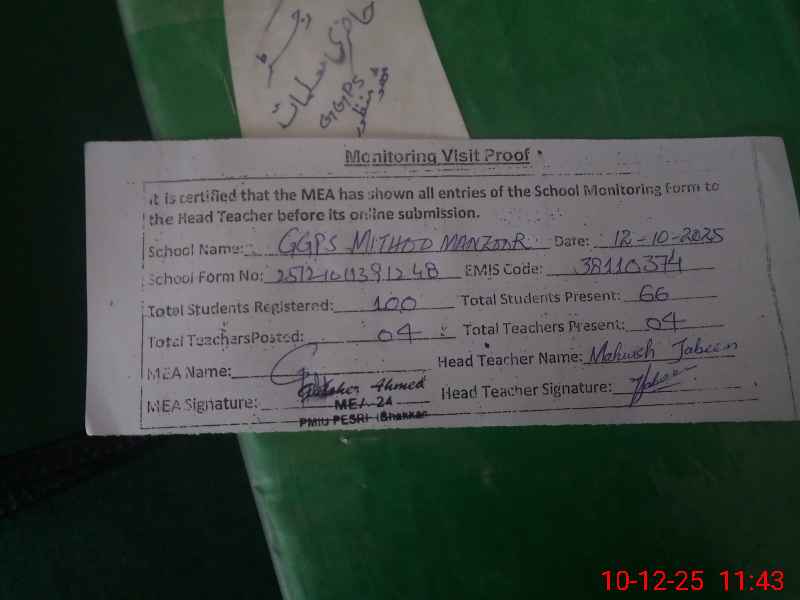 حاضری معلمات
GGPS
Monitoring Visit Proof
It is certified that the MEA has shown all entries of the School Monitoring Form to
the Head Teacher before its online submission.
School Name: GGPS MITHOO MANZOOR Date: 12-10-2025
School Form No: EMIS Code: 38110374
Total Students Registered: 100 Total Students Present: 66
Total TeachersPosted: 04 Total Teachers Present: 04
MEA Name: Head Teacher Name: Mahwish Jabeen
MEA Signature: Ahmed Head Teacher Signature:
MEA-24
PMIU PESRP (Bhakkar
10-12-25 11:43